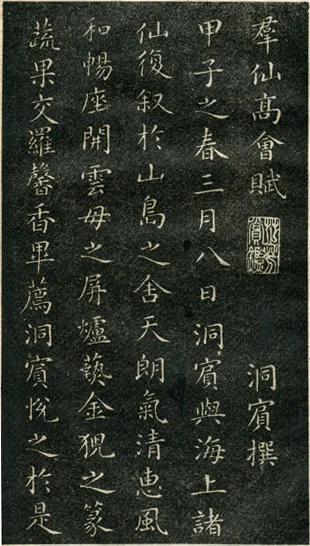 羣仙高會賦 洞賓撰
甲子之春三月八日洞賓與海上諸
仙復叙於山島之舍天朗氣清惠風
和暢座開雲母之屏爐爇金猊之篆
蔬果交羅馨香畢薦洞賓悅之於是